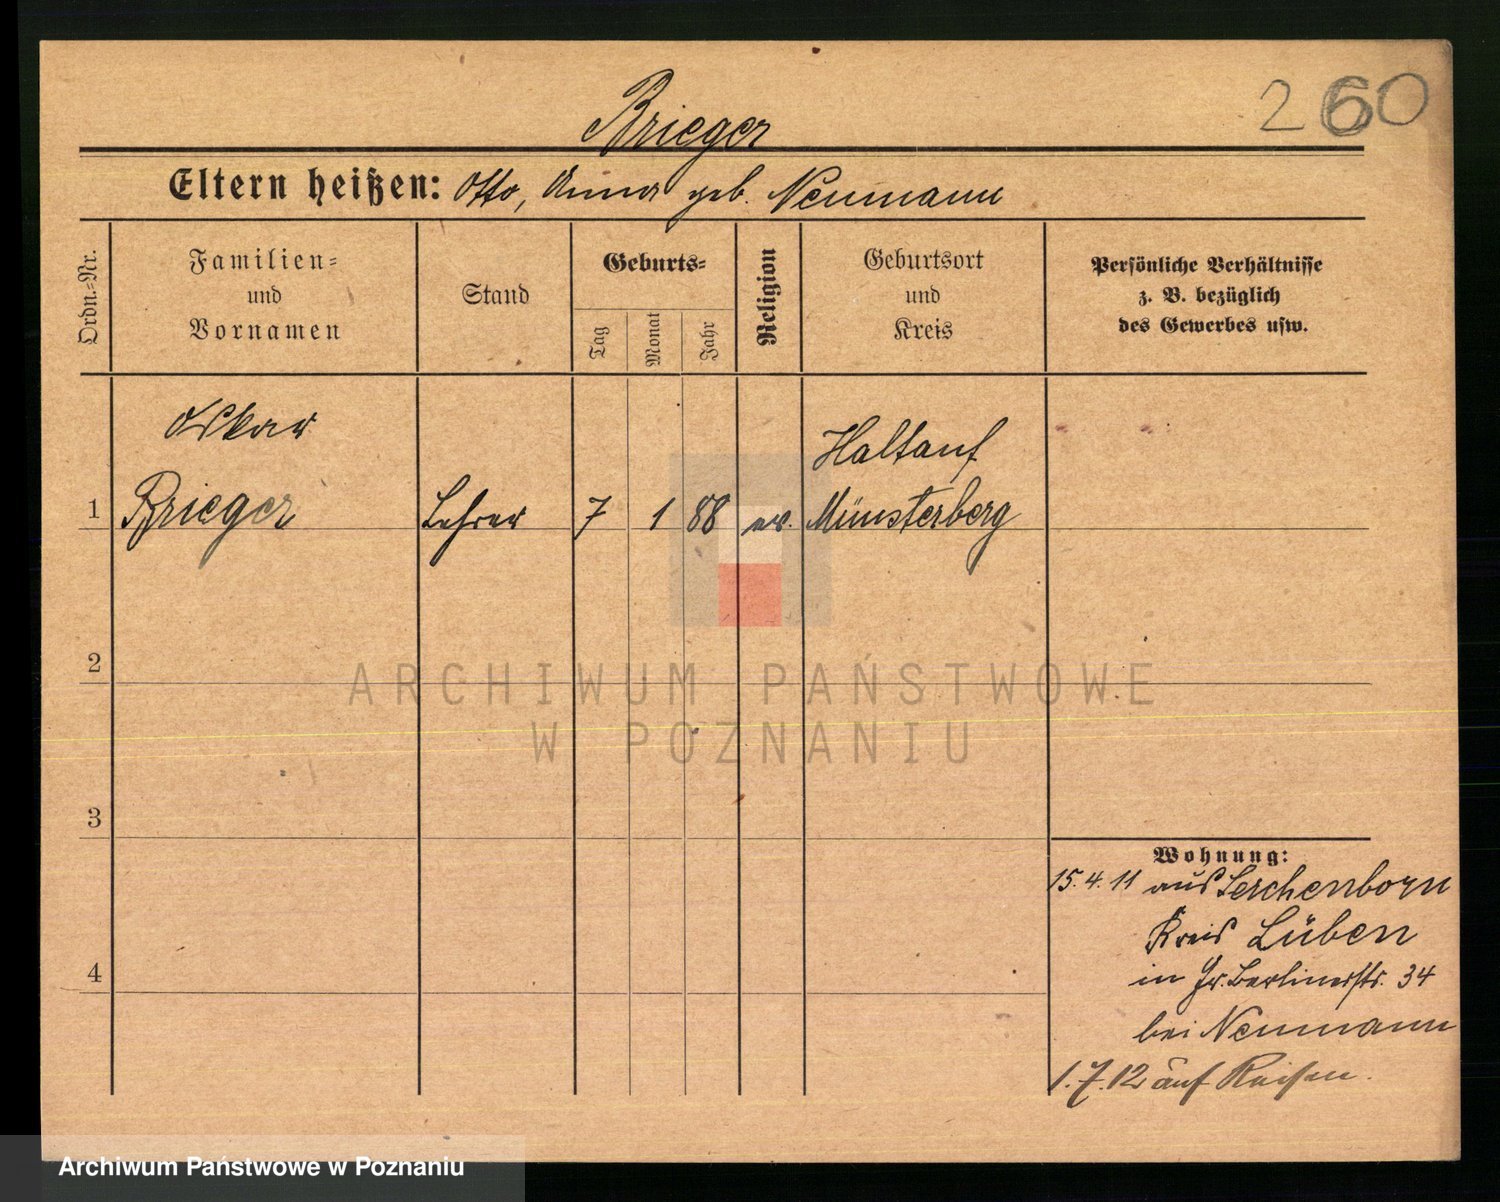 260
Brieger
Eltern heißen: Otto, Anna geb. Neumann
Ordn.-Nr.
Familien=
und
Vornamen
Stand
Geburts=
Tag
Monat
Jahr
Religion
Geburtsort
und
Kreis
Persönliche Verhältnisse
z. B. bezüglich
des Gewerbes usw.
Oskar
Haltauf
1 Brieger Lehrer 7 1 88 ev. Münsterberg
2
ARCHIWUM PAŃSTWOWE
W POZNANIU
3
Wohnung:
15.4.11 aus Lerchenborn
Kreis Lüben
4
in Gr. Berlinerstr. 34
bei Neumann
1.7.12 auf Reisen.
Archiwum Państwowe w Poznaniu